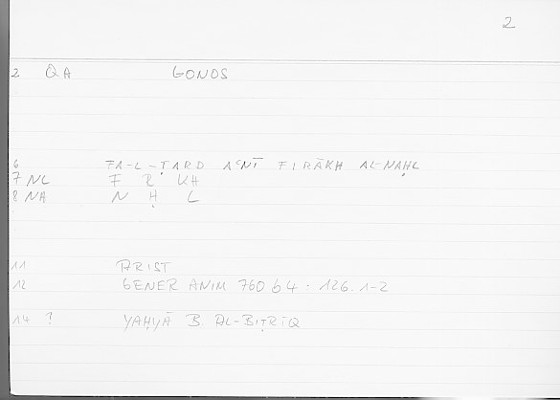 2
2 QA GONOS
6 FA-L-ṬARD AʿNĪ FIRĀKH AL-NAḤL
7 NL F R KH
8 NA N Ḥ L
11 ARIST
12 GENER ANIM 760 b 4 - 126.1-2
14 ? YAḤYĀ B. AL-BIṬRĪQ